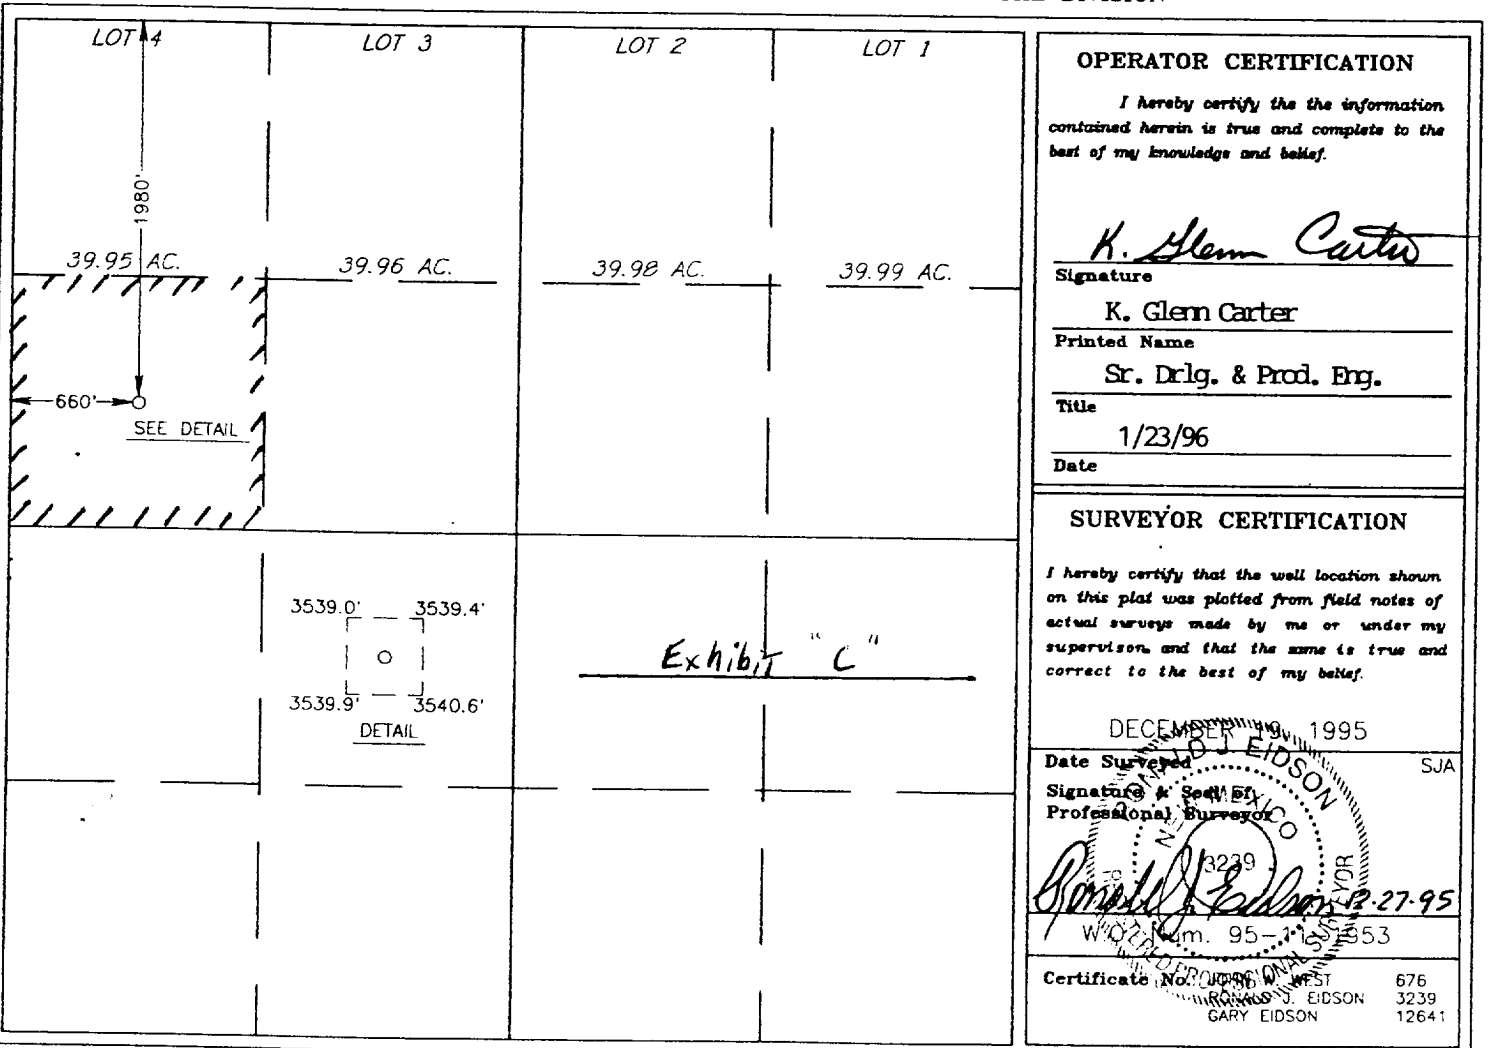 THE DIVISION
LOT 4
LOT 3
LOT 2
LOT 1
1980'
39.95 AC.
39.96 AC.
39.98 AC.
39.99 AC.
660'
SEE DETAIL
3539.0'
3539.4'
3539.9'
3540.6'
DETAIL
Exhibit "C"
OPERATOR CERTIFICATION
I hereby certify the the information
contained herein is true and complete to the
best of my knowledge and belief.
K. Glenn Carter
Signature
K. Glenn Carter
Printed Name
Sr. Drlg. & Prod. Eng.
Title
1/23/96
Date
SURVEYOR CERTIFICATION
I hereby certify that the well location shown
on this plat was plotted from field notes of
actual surveys made by me or under my
supervison, and that the same is true and
correct to the best of my belief.
DECEMBER 19, 1995
Date Surveyed
SJA
Signature & Seal of
Professional Surveyor
RONALD J. EIDSON
NEW MEXICO
3239
REGISTERED PROFESSIONAL SURVEYOR
Ronald J. Eidson 12-27-95
W.O. Num. 95-11-1953
Certificate No. JOHN W. WEST 676
RONALD J. EIDSON 3239
GARY EIDSON 12641